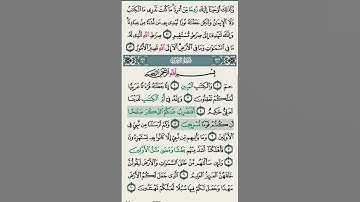 وَكَذَٰلِكَ أَوْحَيْنَا إِلَيْكَ رُوحًا مِّنْ أَمْرِنَا مَا كُنتَ تَدْرِي مَا الْكِتَٰبُ
وَلَا الْإِيمَٰنُ وَلَٰكِن جَعَلْنَٰهُ نُورًا نَّهْدِي بِهِ مَن نَّشَاءُ مِنْ عِبَادِنَا
وَإِنَّكَ لَتَهْدِي إِلَىٰ صِرَٰطٍ مُّسْتَقِيمٍ ٥٢ صِرَٰطِ اللَّهِ الَّذِي لَهُ
مَا فِي السَّمَٰوَٰتِ وَمَا فِي الْأَرْضِ أَلَا إِلَى اللَّهِ تَصِيرُ الْأُمُورُ ٥٣
سُورَةُ الزُّخْرُفِ
بِسْمِ اللَّهِ الرَّحْمَٰنِ الرَّحِيمِ
حمٓ ١ وَالْكِتَٰبِ الْمُبِينِ ٢ إِنَّا جَعَلْنَٰهُ قُرْءَٰنًا عَرَبِيًّا
لَّعَلَّكُمْ تَعْقِلُونَ ٣ وَإِنَّهُ فِي أُمِّ الْكِتَٰبِ لَدَيْنَا
لَعَلِيٌّ حَكِيمٌ ٤ أَفَنَضْرِبُ عَنكُمُ الذِّكْرَ صَفْحًا
أَن كُنتُمْ قَوْمًا مُّسْرِفِينَ ٥ وَكَمْ أَرْسَلْنَا مِن نَّبِيٍّ فِي
الْأَوَّلِينَ ٦ وَمَا يَأْتِيهِم مِّن نَّبِيٍّ إِلَّا كَانُوا بِهِ يَسْتَهْزِءُونَ
٧ فَأَهْلَكْنَا أَشَدَّ مِنْهُم بَطْشًا وَمَضَىٰ مَثَلُ الْأَوَّلِينَ
٨ وَلَئِن سَأَلْتَهُم مَّنْ خَلَقَ السَّمَٰوَٰتِ وَالْأَرْضَ لَيَقُولُنَّ
خَلَقَهُنَّ الْعَزِيزُ الْعَلِيمُ ٩ الَّذِي جَعَلَ لَكُمُ الْأَرْضَ
مَهْدًا وَجَعَلَ لَكُمْ فِيهَا سُبُلًا لَّعَلَّكُمْ تَهْتَدُونَ ١٠